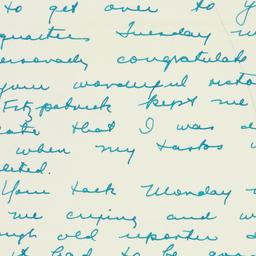 to get over to y
quarters Tuesday
ersonally congratulate
your wonderful victo
Fitzpatrick kept me
late that I was d
when my tasks w
leted.
Your talk Monday
me crying and w
ugh old reporter
it had to be goo